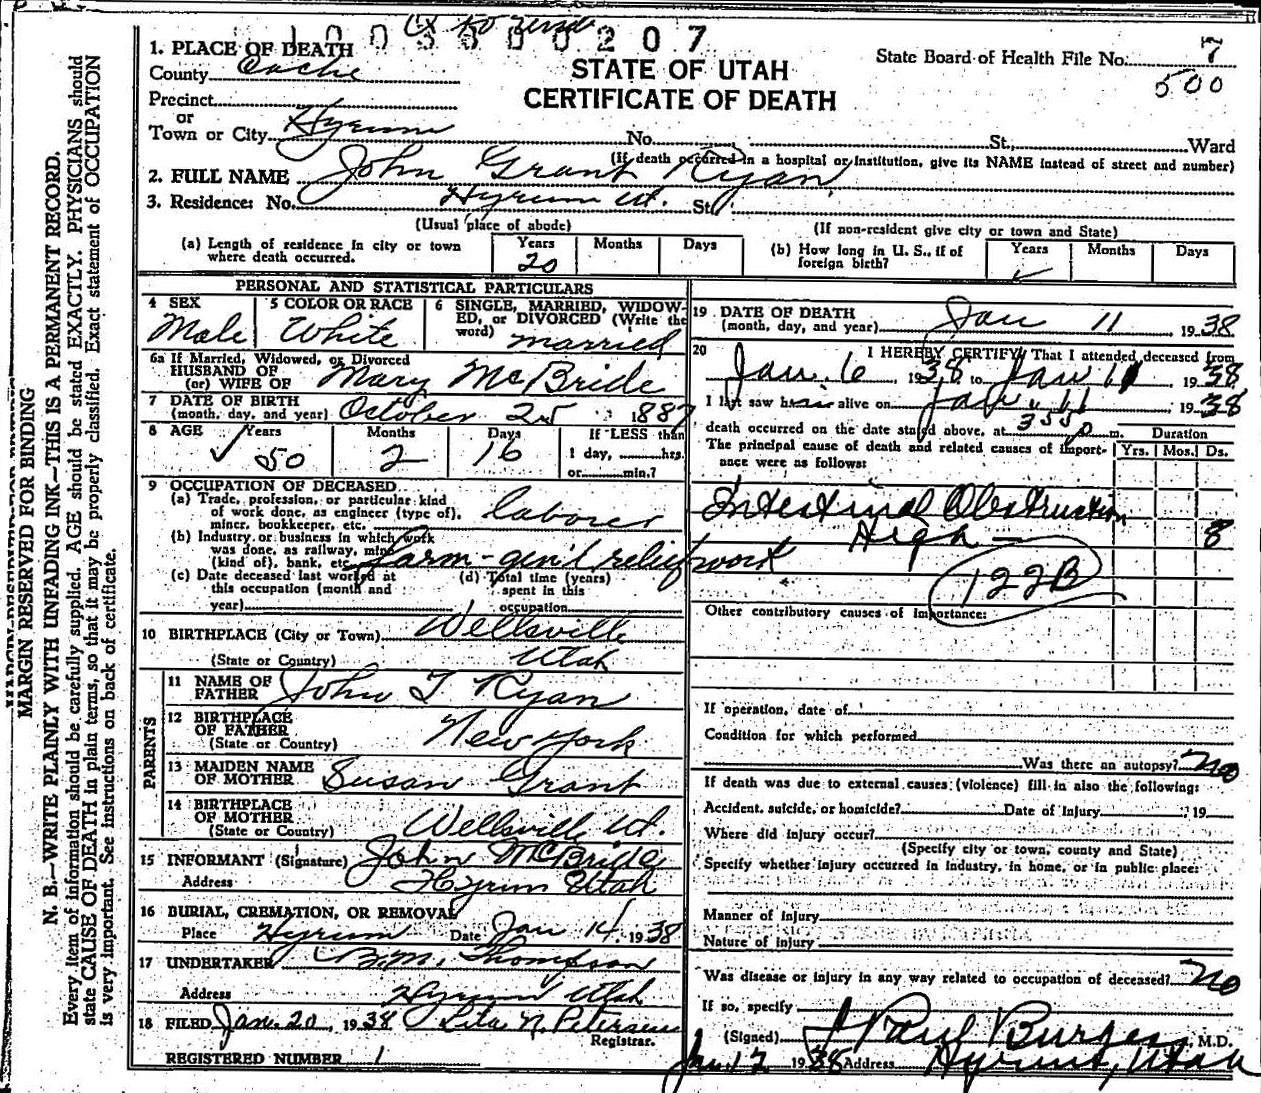 1003800207
STATE OF UTAH
CERTIFICATE OF DEATH
State Board of Health File No. 7
500
1. PLACE OF DEATH
County Cache
Precinct
or
Town or City Hyrum No. St., Ward
(If death occurred in a hospital or institution, give its NAME instead of street and number)
2. FULL NAME John Grant Ryan
3. Residence: No. Hyrum Ut. St.
(Usual place of abode) (If non-resident give city or town and State)
(a) Length of residence in city or town where death occurred. Years 20 Months Days
(b) How long in U. S., if of foreign birth? Years Months Days
PERSONAL AND STATISTICAL PARTICULARS
4 SEX Male
5 COLOR OR RACE White
6 SINGLE, MARRIED, WIDOWED, or DIVORCED (Write the word) married
6a If Married, Widowed, or Divorced
HUSBAND OF
(or) WIFE OF Mary McBride
7 DATE OF BIRTH
(month, day, and year) October 25 1887
8 AGE Years 50 Months 2 Days 16 If LESS than
1 day, hrs.
or min.?
9 OCCUPATION OF DECEASED
(a) Trade, profession, or particular kind
of work done, as engineer (type of),
miner, bookkeeper, etc. laborer
(b) Industry or business in which work
was done, as railway, mine
(kind of), bank, etc. farm - gen'l relief work
(c) Date deceased last worked at
this occupation (month and
year)
(d) Total time (years)
spent in this
occupation
10 BIRTHPLACE (City or Town) Wellsville
(State or Country) Utah
PARENTS
11 NAME OF
FATHER John T Ryan
12 BIRTHPLACE
OF FATHER
(State or Country) New York
13 MAIDEN NAME
OF MOTHER Susan Grant
14 BIRTHPLACE
OF MOTHER
(State or Country) Wellsville Ut.
15 INFORMANT (Signature) John McBride
Address Hyrum Utah
16 BURIAL, CREMATION, OR REMOVAL
Place Hyrum Date Jan 14, 1938
17 UNDERTAKER B.M. Thompson
Address Hyrum Utah
18 FILED Jan. 20, 1938 Lita N. Petersen
Registrar.
REGISTERED NUMBER 1
19 DATE OF DEATH
(month, day, and year) Jan 11, 1938
20 I HEREBY CERTIFY, That I attended deceased from
Jan. 6, 1938, to Jan 11, 1938
I last saw him alive on Jan 11, 1938
death occurred on the date stated above, at 355 p m. Duration
The principal cause of death and related causes of importance were as follows: Yrs. Mos. Ds.
Intestinal Obstruction
High - 8
122B
Other contributory causes of importance:
If operation, date of
Condition for which performed
Was there an autopsy? No
If death was due to external causes (violence) fill in also the following:
Accident, suicide, or homicide? Date of injury , 19
Where did injury occur?
(Specify city or town, county and State)
Specify whether injury occurred in industry, in home, or in public place:
Manner of injury
Nature of injury
Was disease or injury in any way related to occupation of deceased? No
If so, specify
(Signed) J Paul Burgess, M.D.
Jan 12 1938 Address Hyrum, Utah
MARGIN RESERVED FOR BINDING
N. B.—WRITE PLAINLY WITH UNFADING INK—THIS IS A PERMANENT RECORD.
Every item of information should be carefully supplied. AGE should be stated EXACTLY. PHYSICIANS should
state CAUSE OF DEATH in plain terms, so that it may be properly classified. Exact statement of OCCUPATION
is very important. See instructions on back of certificate.